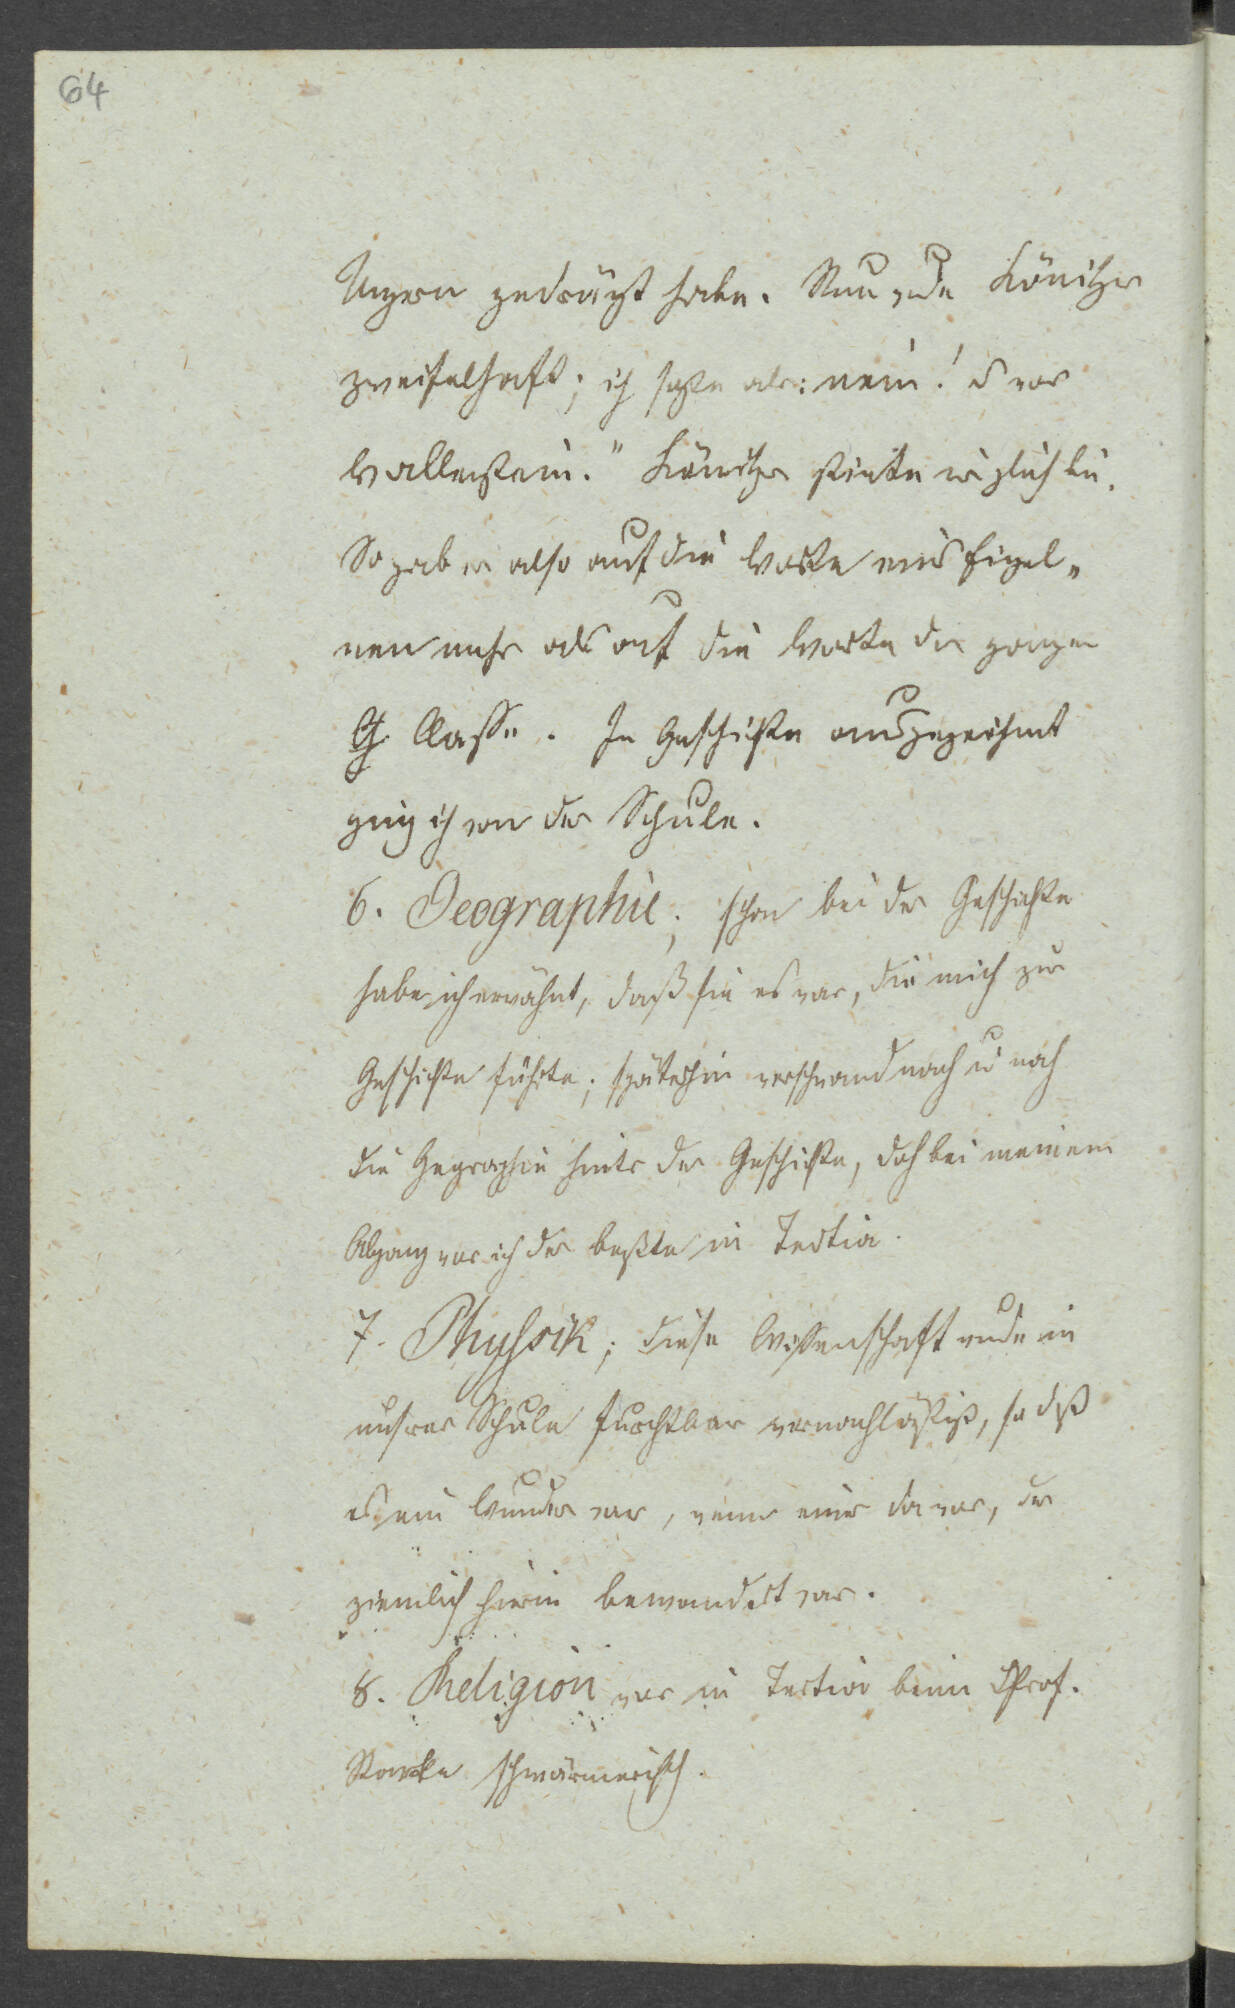 64
Ungern gedrängt habe. Nun wurde Könitzer
zweifelhaft; ich sagte aber: nein! es war
Wallenstein." Könitzer stimte mir gleich bei.
So gab er also auf die Worte eines Einzel„
nen mehr als auf die Worte der ganzen
G. Classe. In Geschichte ausgezeichnet
ging ich von der Schule.
6. Geographie; schon bei der Geschichte
habe ich erwähnt, daß sie es war, die mich zur
Geschichte führte; späterhin verschwand nach u nach
die Geographie hinter der Geschichte, doch bei meinem
Abgang war ich der beßte in Tertia.
7. Physik; diese Wissenschaft wurde in
unsrer Schule furchtbar vernachläßigt, so daß
es ein Wunder war, wenn einer da war, der
ziemlich hierin bewandert war.
8. Religion war in Tertia beim Prof.
Starke schwärmerisch.